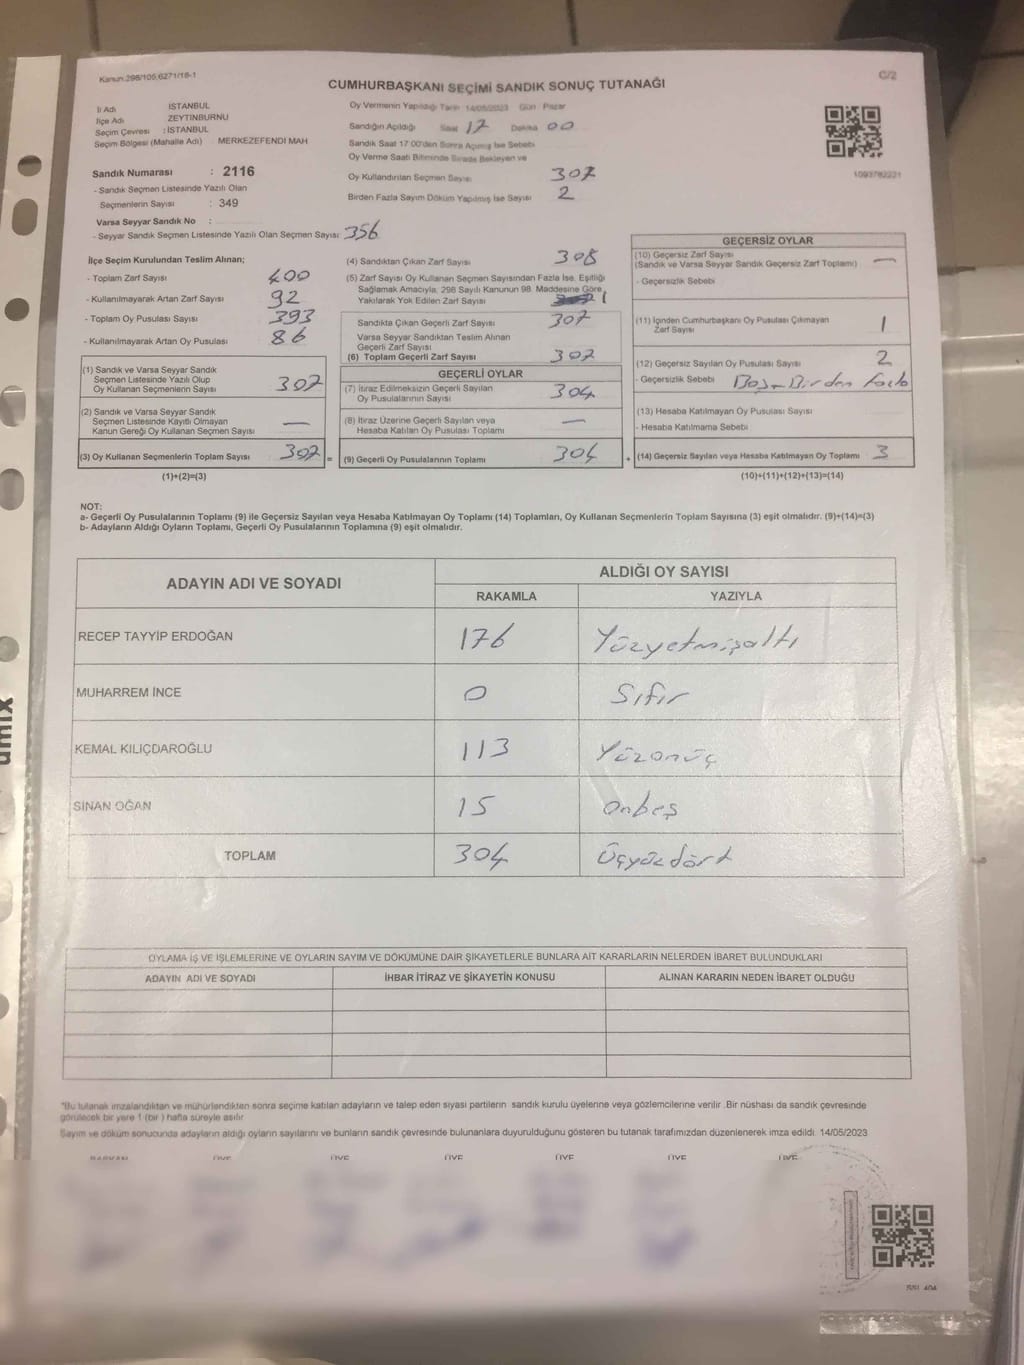 Kanun:298/105,6271/18-1
C/2
CUMHURBAŞKANI SEÇİMİ SANDIK SONUÇ TUTANAĞI
İl Adı İSTANBUL
İlçe Adı ZEYTİNBURNU
Seçim Çevresi : İSTANBUL
Seçim Bölgesi (Mahalle Adı) MERKEZEFENDİ MAH
Sandık Numarası : 2116
- Sandık Seçmen Listesinde Yazılı Olan
Seçmenlerin Sayısı : 349
Varsa Seyyar Sandık No :
- Seyyar Sandık Seçmen Listesinde Yazılı Olan Seçmen Sayısı: 356
Oy Vermenin Yapıldığı Tarih 14/05/2023 Gün Pazar
Sandığın Açıldığı Saat 17 Dakika 00
Sandık Saat 17:00'den Sonra Açılmış İse Sebebi
Oy Verme Saati Bitiminde Sırada Bekleyen ve
Oy Kullandırılan Seçmen Sayısı 307
Birden Fazla Sayım Döküm Yapılmış İse Sayısı 2
1093782221
İlçe Seçim Kurulundan Teslim Alınan;
- Toplam Zarf Sayısı 400
- Kullanılmayarak Artan Zarf Sayısı 92
- Toplam Oy Pusulası Sayısı 393
- Kullanılmayarak Artan Oy Pusulası 86
(1) Sandık ve Varsa Seyyar Sandık
Seçmen Listesinde Yazılı Olup
Oy Kullanan Seçmenlerin Sayısı 307
(2) Sandık ve Varsa Seyyar Sandık
Seçmen Listesinde Kayıtlı Olmayan
Kanun Gereği Oy Kullanan Seçmen Sayısı —
(3) Oy Kullanan Seçmenlerin Toplam Sayısı 307 =
(1)+(2)=(3)
(4) Sandıktan Çıkan Zarf Sayısı 308
(5) Zarf Sayısı Oy Kullanan Seçmen Sayısından Fazla İse, Eşitliği
Sağlamak Amacıyla, 298 Sayılı Kanunun 98. Maddesine Göre
Yakılarak Yok Edilen Zarf Sayısı 1
Sandıkta Çıkan Geçerli Zarf Sayısı 307
Varsa Seyyar Sandıktan Teslim Alınan
Geçerli Zarf Sayısı
(6) Toplam Geçerli Zarf Sayısı 307
GEÇERLİ OYLAR
(7) İtiraz Edilmeksizin Geçerli Sayılan
Oy Pusulalarının Sayısı 304
(8) İtiraz Üzerine Geçerli Sayılan veya
Hesaba Katılan Oy Pusulası Toplamı —
(9) Geçerli Oy Pusulalarının Toplamı 304 +
GEÇERSİZ OYLAR
(10) Geçersiz Zarf Sayısı
(Sandık ve Varsa Seyyar Sandık Geçersiz Zarf Toplamı) —
- Geçersizlik Sebebi
(11) İçinden Cumhurbaşkanı Oy Pusulası Çıkmayan
Zarf Sayısı 1
(12) Geçersiz Sayılan Oy Pusulası Sayısı 2
- Geçersizlik Sebebi Boş - Birden fazla
(13) Hesaba Katılmayan Oy Pusulası Sayısı
- Hesaba Katılmama Sebebi
(14) Geçersiz Sayılan veya Hesaba Katılmayan Oy Toplamı 3
(10)+(11)+(12)+(13)=(14)
NOT:
a- Geçerli Oy Pusulalarının Toplamı (9) ile Geçersiz Sayılan veya Hesaba Katılmayan Oy Toplamı (14) Toplamları, Oy Kullanan Seçmenlerin Toplam Sayısına (3) eşit olmalıdır. (9)+(14)=(3)
b- Adayların Aldığı Oyların Toplamı, Geçerli Oy Pusulalarının Toplamına (9) eşit olmalıdır.
ADAYIN ADI VE SOYADI ALDIĞI OY SAYISI
RAKAMLA YAZIYLA
RECEP TAYYİP ERDOĞAN 176 Yüzyetmişaltı
MUHARREM İNCE 0 Sıfır
KEMAL KILIÇDAROĞLU 113 Yüzonüç
SİNAN OĞAN 15 onbeş
TOPLAM 304 Üçyüzdört
OYLAMA İŞ VE İŞLEMLERİNE VE OYLARIN SAYIM VE DÖKÜMÜNE DAİR ŞİKAYETLERLE BUNLARA AİT KARARLARIN NELERDEN İBARET BULUNDUKLARI
ADAYIN ADI VE SOYADI İHBAR İTİRAZ VE ŞİKAYETİN KONUSU ALINAN KARARIN NEDEN İBARET OLDUĞU
*Bu tutanak imzalandıktan ve mühürlendikten sonra seçime katılan adayların ve talep eden siyasi partilerin sandık kurulu üyelerine veya gözlemcilerine verilir .Bir nüshası da sandık çevresinde
görülecek bir yere 1 (bir ) hafta süreyle asılır
Sayım ve döküm sonucunda adayların aldığı oyların sayılarını ve bunların sandık çevresinde bulunanlara duyurulduğunu gösteren bu tutanak tarafımızdan düzenlenerek imza edildi. 14/05/2023
BAŞKAN ÜYE ÜYE ÜYE ÜYE ÜYE ÜYE